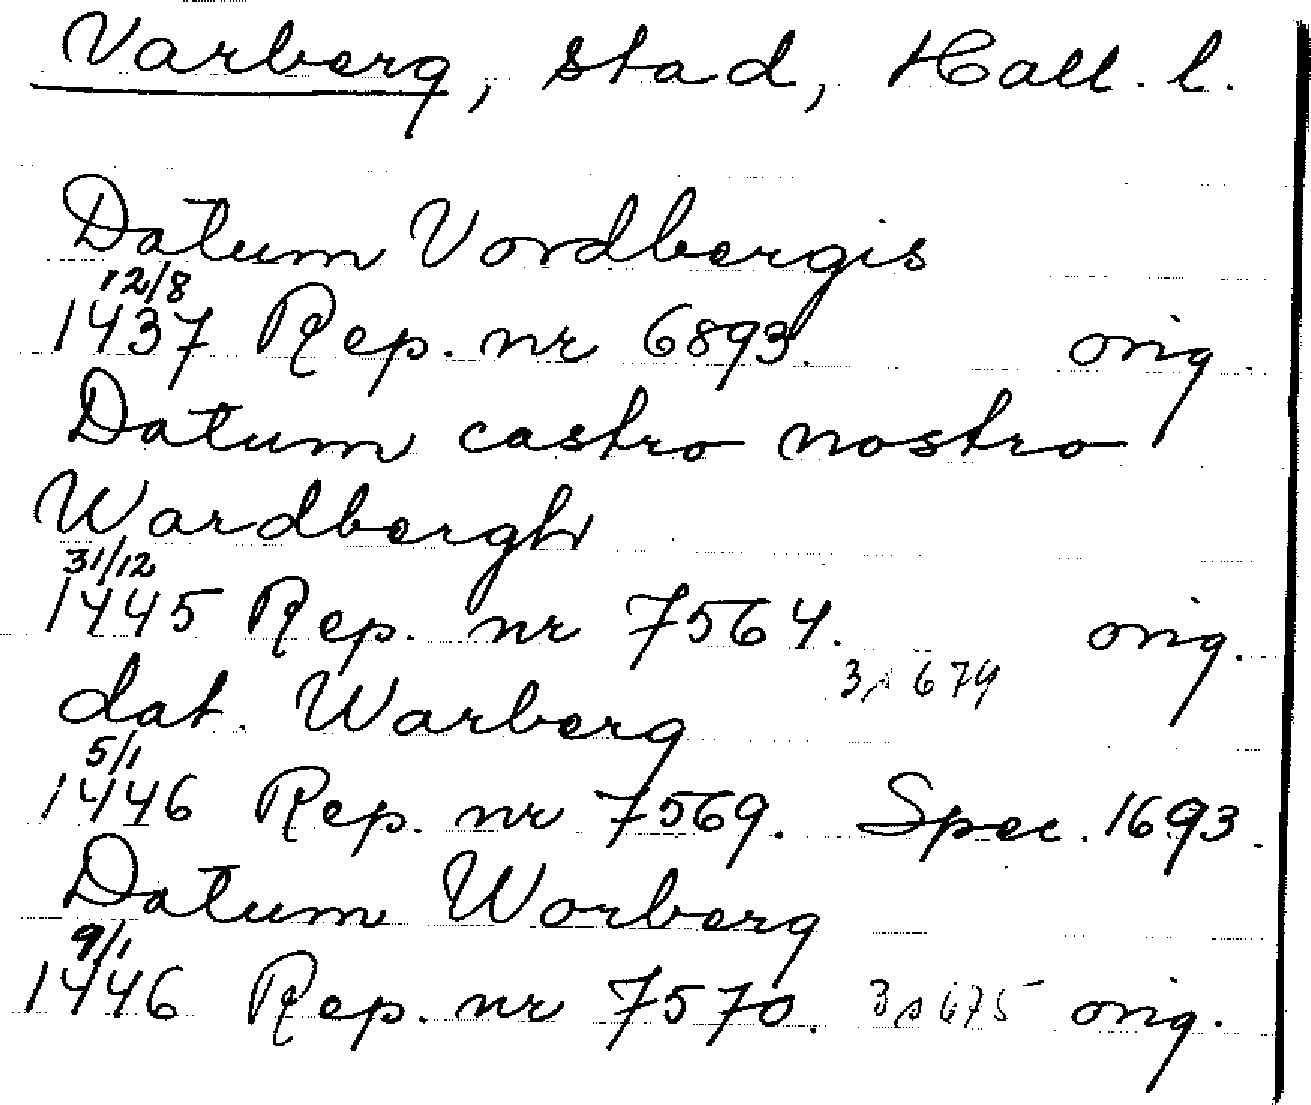 Varberg, stad, Hall. l.
Datum Vordbergis
12/8
1437 Rep. nr 6893. orig.
Datum castro nostro
Wardbergh
31/12
1445 Rep. nr 7564. orig.
3s 674
dat. Warberg
5/1
1446 Rep. nr 7569. Spec. 1693.
Datum Worberg
9/1
1446 Rep. nr 7570. 3s 675 orig.